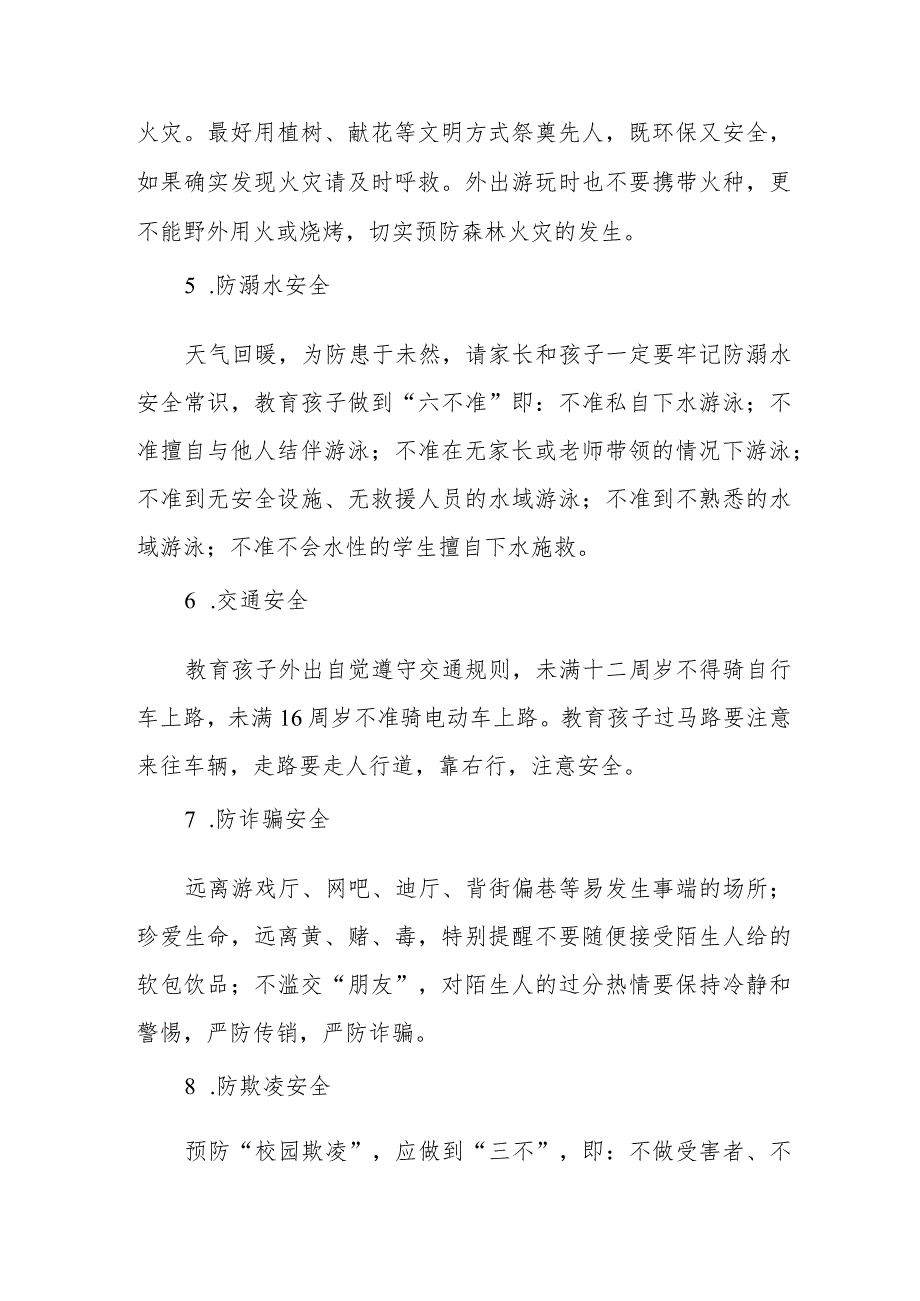 火灾。最好用植树、献花等文明方式祭奠先人，既环保又安全，
如果确实发现火灾请及时呼救。外出游玩时也不要携带火种，更
不能野外用火或烧烤，切实预防森林火灾的发生。
5 .防溺水安全
天气回暖，为防患于未然，请家长和孩子一定要牢记防溺水
安全常识，教育孩子做到“六不准”即：不准私自下水游泳；不
准擅自与他人结伴游泳；不准在无家长或老师带领的情况下游泳；
不准到无安全设施、无救援人员的水域游泳；不准到不熟悉的水
域游泳；不准不会水性的学生擅自下水施救。
6 .交通安全
教育孩子外出自觉遵守交通规则，未满十二周岁不得骑自行
车上路，未满16周岁不准骑电动车上路。教育孩子过马路要注意
来往车辆，走路要走人行道，靠右行，注意安全。
7 .防诈骗安全
远离游戏厅、网吧、迪厅、背街偏巷等易发生事端的场所；
珍爱生命，远离黄、赌、毒，特别提醒不要随便接受陌生人给的
软包饮品；不滥交“朋友”，对陌生人的过分热情要保持冷静和
警惕，严防传销，严防诈骗。
8 .防欺凌安全
预防“校园欺凌”，应做到“三不”，即：不做受害者、不